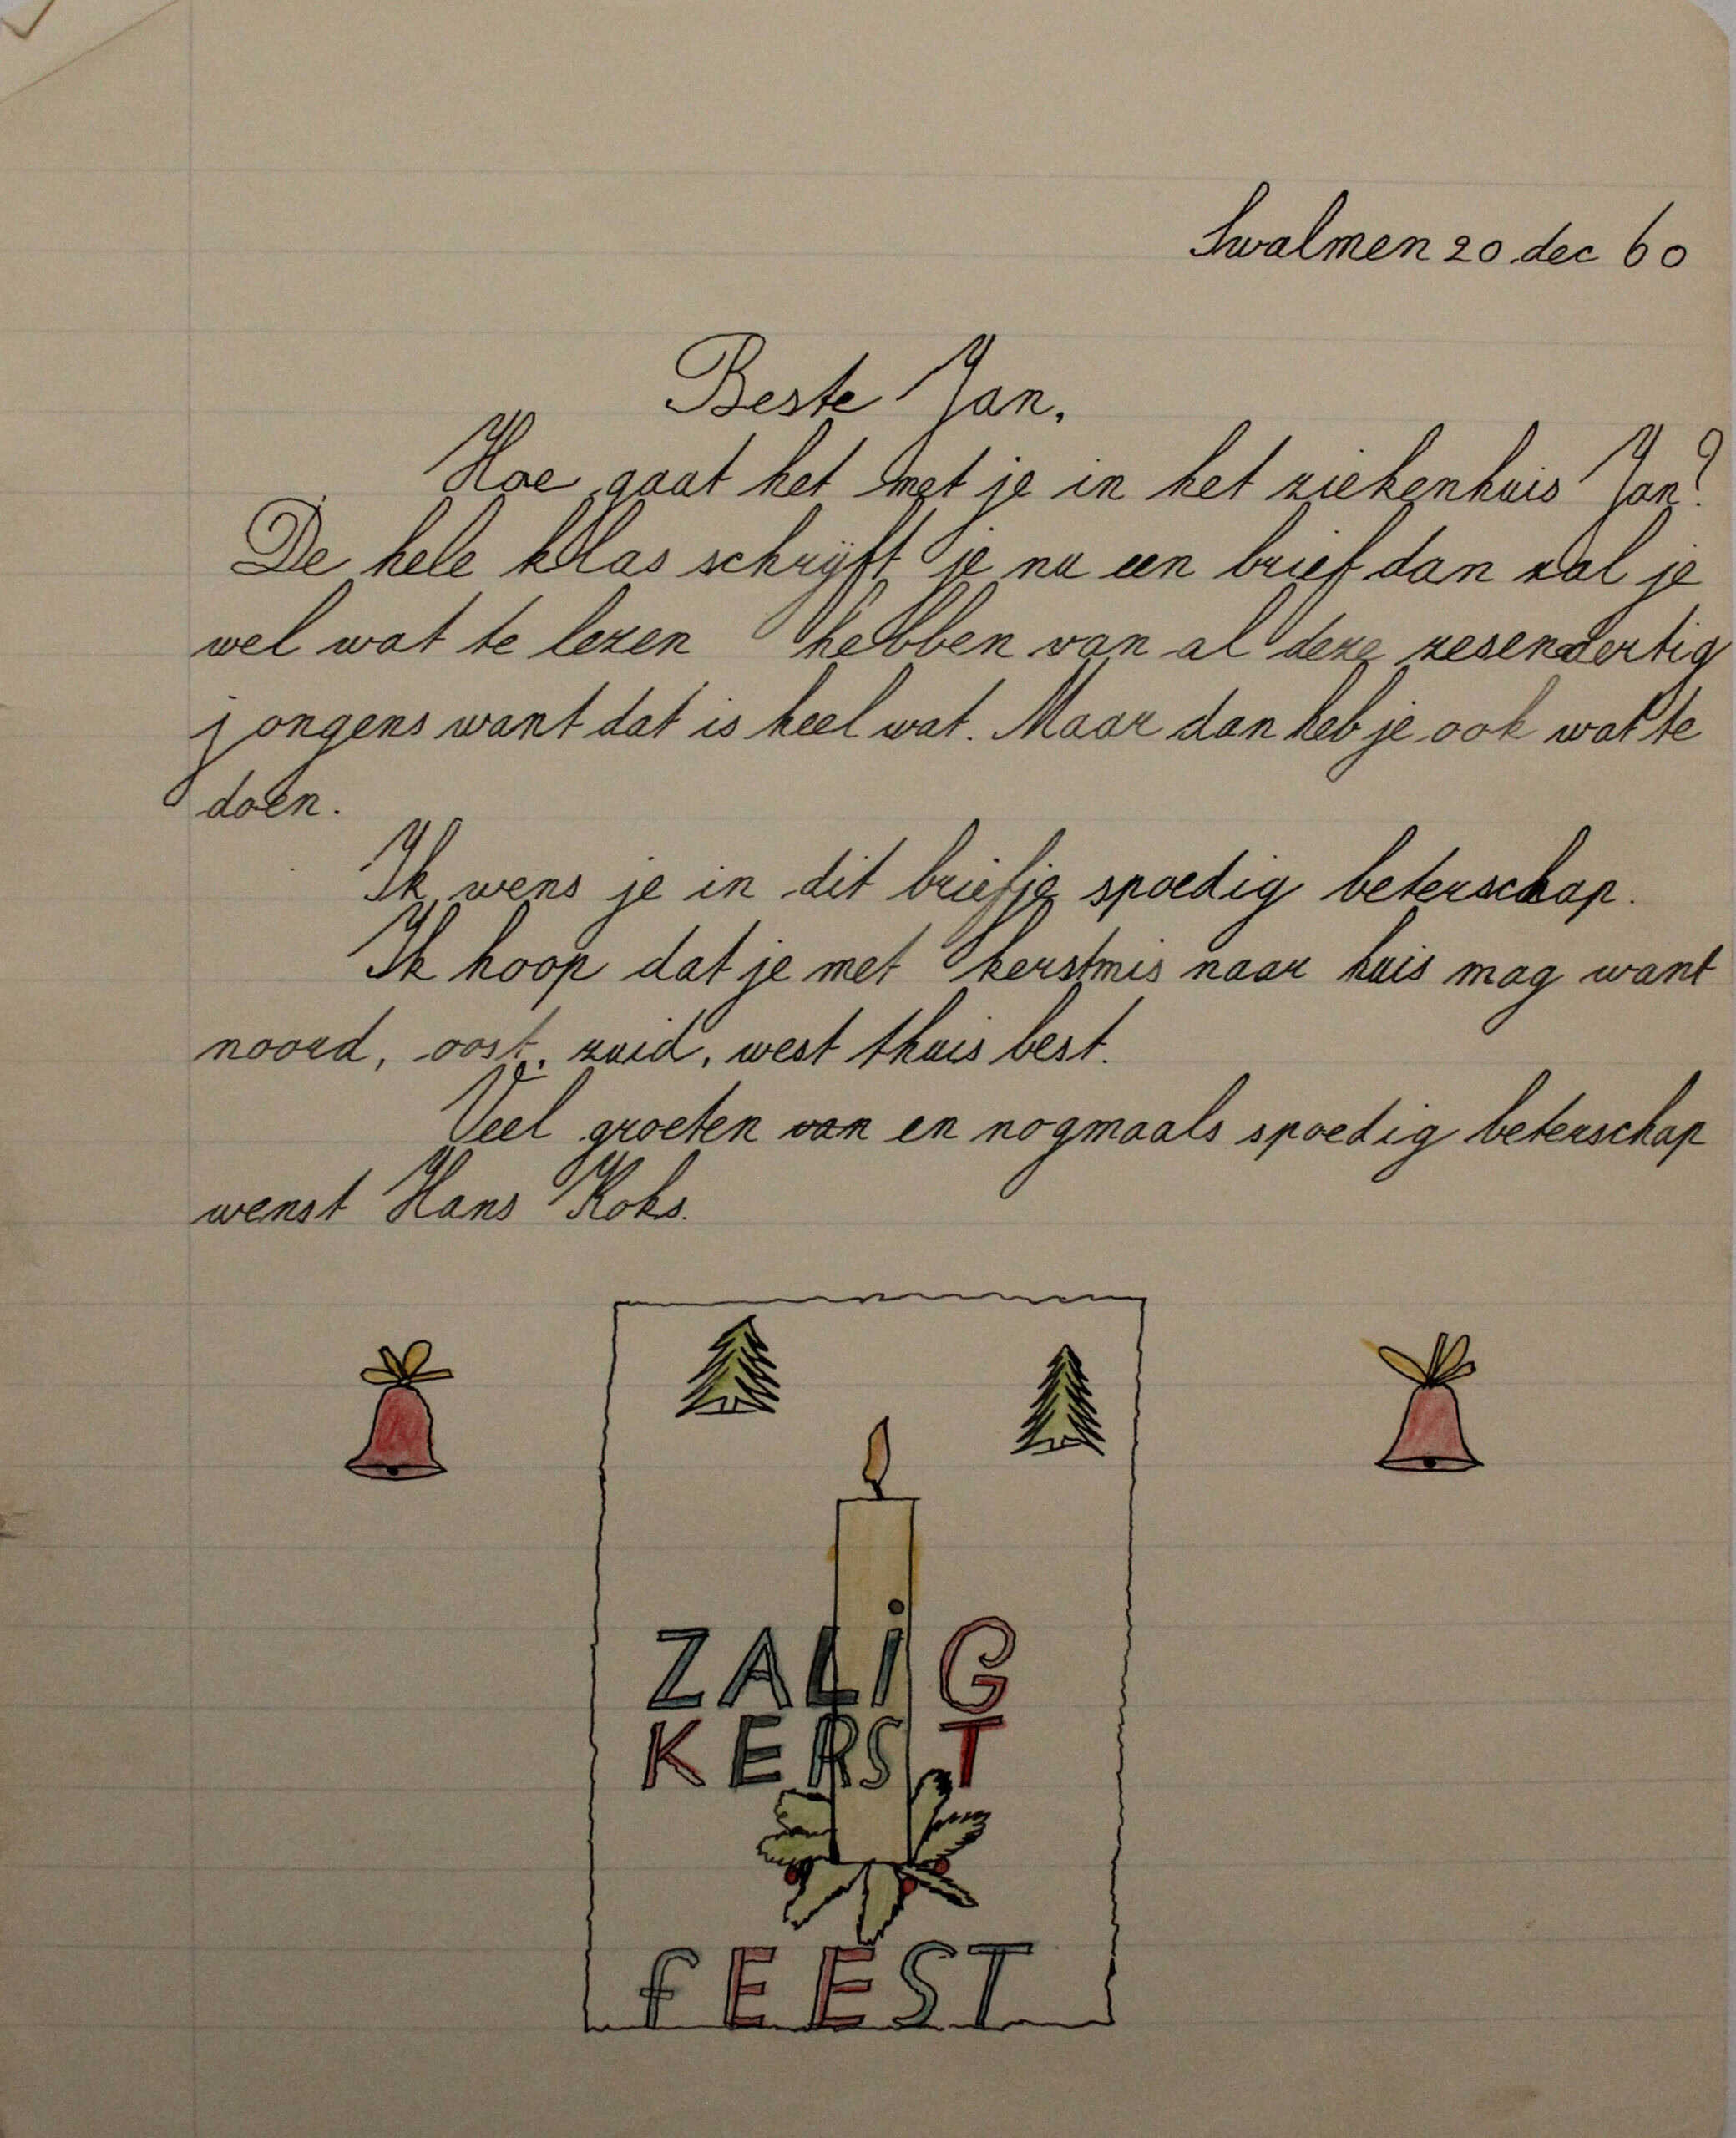 Swalmen 20 dec 60
Beste Jan,
Hoe gaat het met je in het ziekenhuis Jan?
De hele klas schrijft je nu een brief dan zal je
wel wat te lezen hebben van al deze zesendertig
jongens want dat is heel wat. Maar dan heb je ook wat te
doen.
Ik wens je in dit briefje spoedig beterschap.
Ik hoop dat je met kerstmis naar huis mag want
noord, oost, zuid, west thuis best.
Veel groeten van en nogmaals spoedig beterschap
wenst Hans Koks.
ZALiG
KERST
fEEST